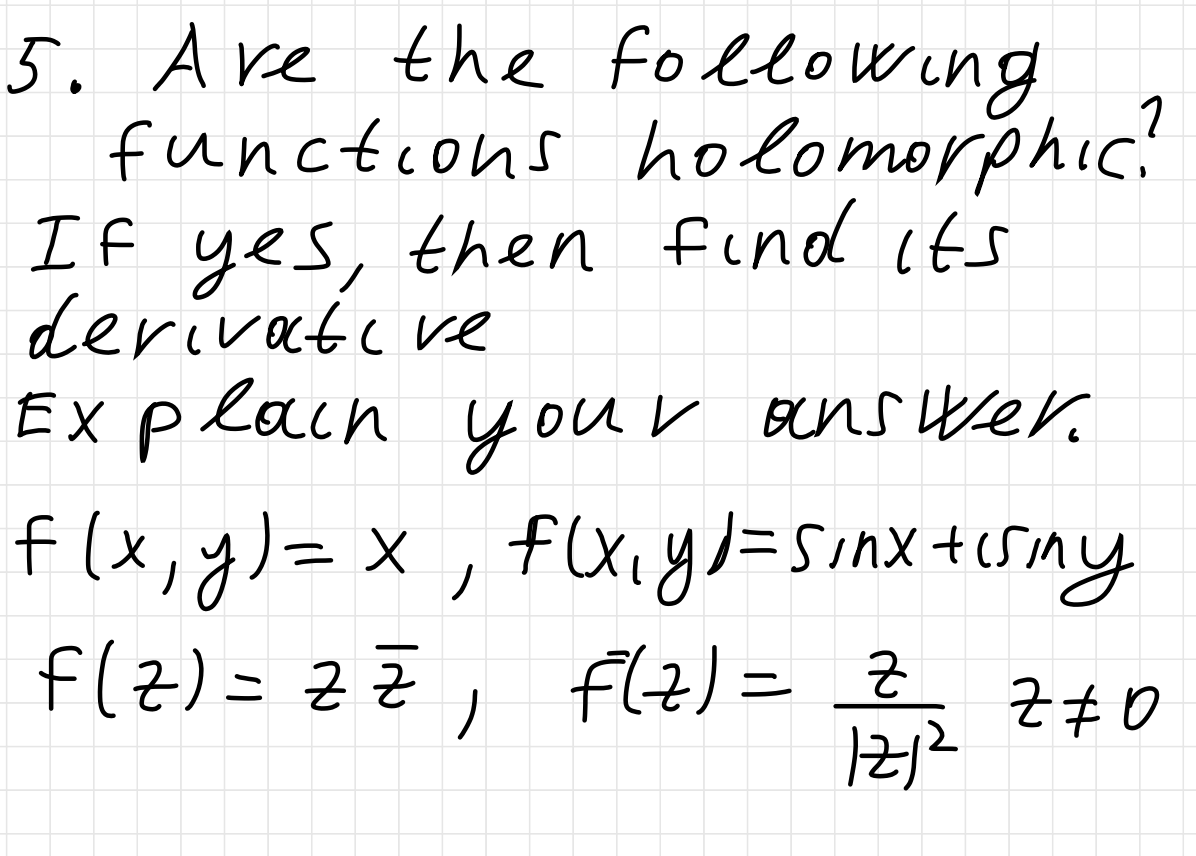 5. Are the following
functions holomorphic?
If yes, then find its
derivative
Explain your answer.
f(x,y)=x , f(x,y)=sinx+isiny
f(z)= z z̅ , f(z)= z/|z|² z≠0